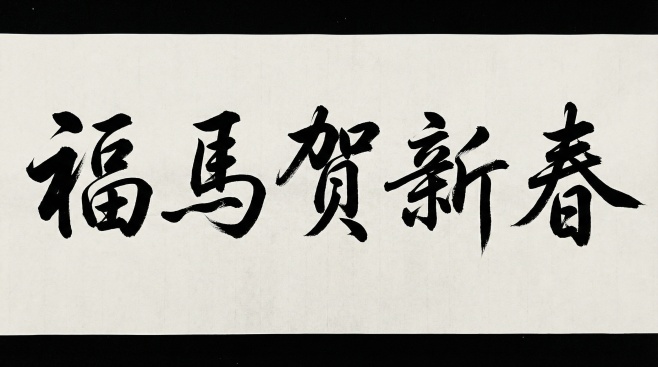 福馬贺新春